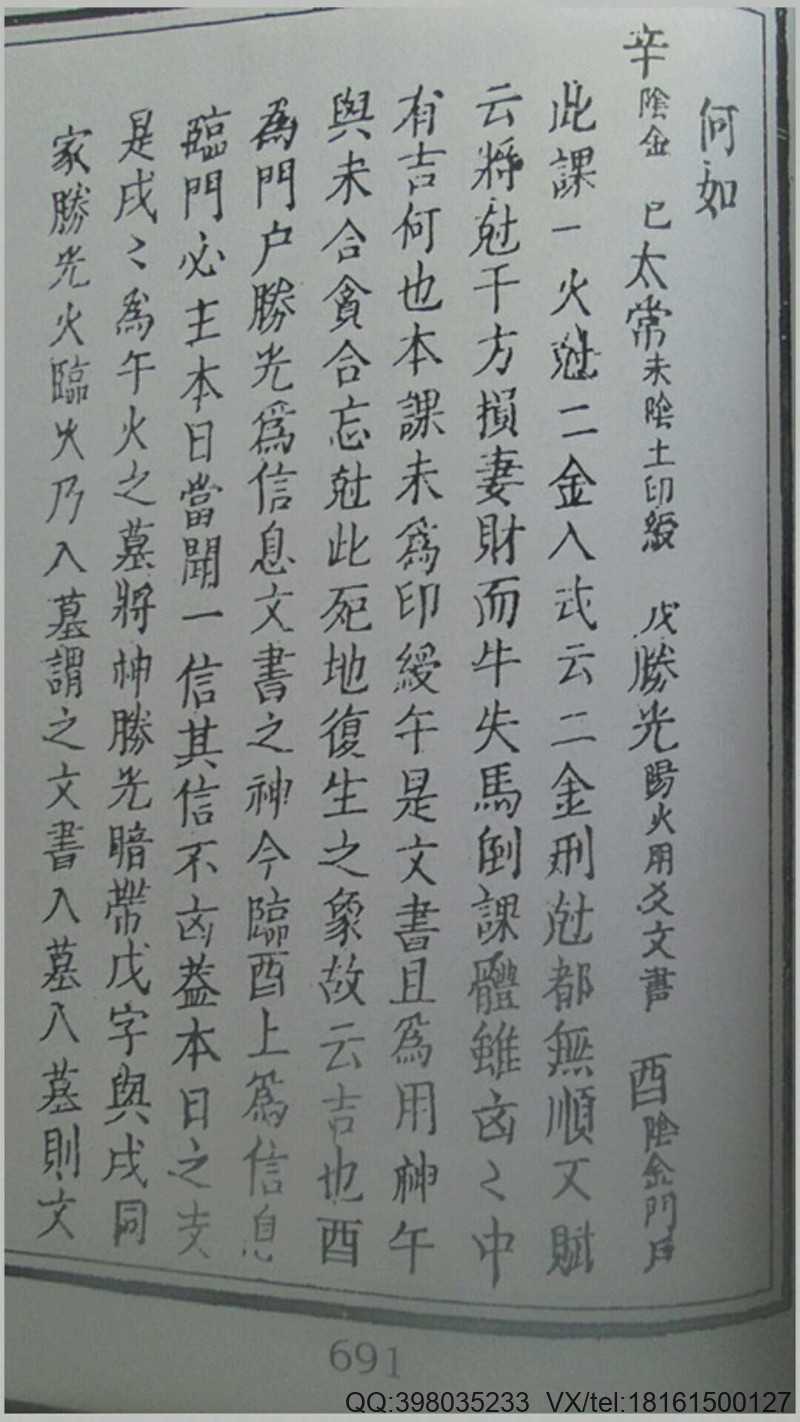 何如
辛陰金　巳太常未陰土印綬　戊勝光陽火用爻文書　酉陰金門戶
此課一火尅二金入式云二金刑尅都無順又賦
云將尅干方損妻財而牛失馬倒課體雖凶〻中
有吉何也本課未爲印綬午是文書且爲用神午
與未合貪合忘尅此死地復生之象故云吉也酉
爲門户勝光爲信息文書之神今臨酉上爲信息
臨門必主本日當聞一信其信不凶葢本日之支
是戌〻爲午火之墓將神勝光暗帶戊字與戌同
家勝光火臨火乃入墓謂之文書入墓入墓則文
691
QQ:398035233 VX/tel:18161500127